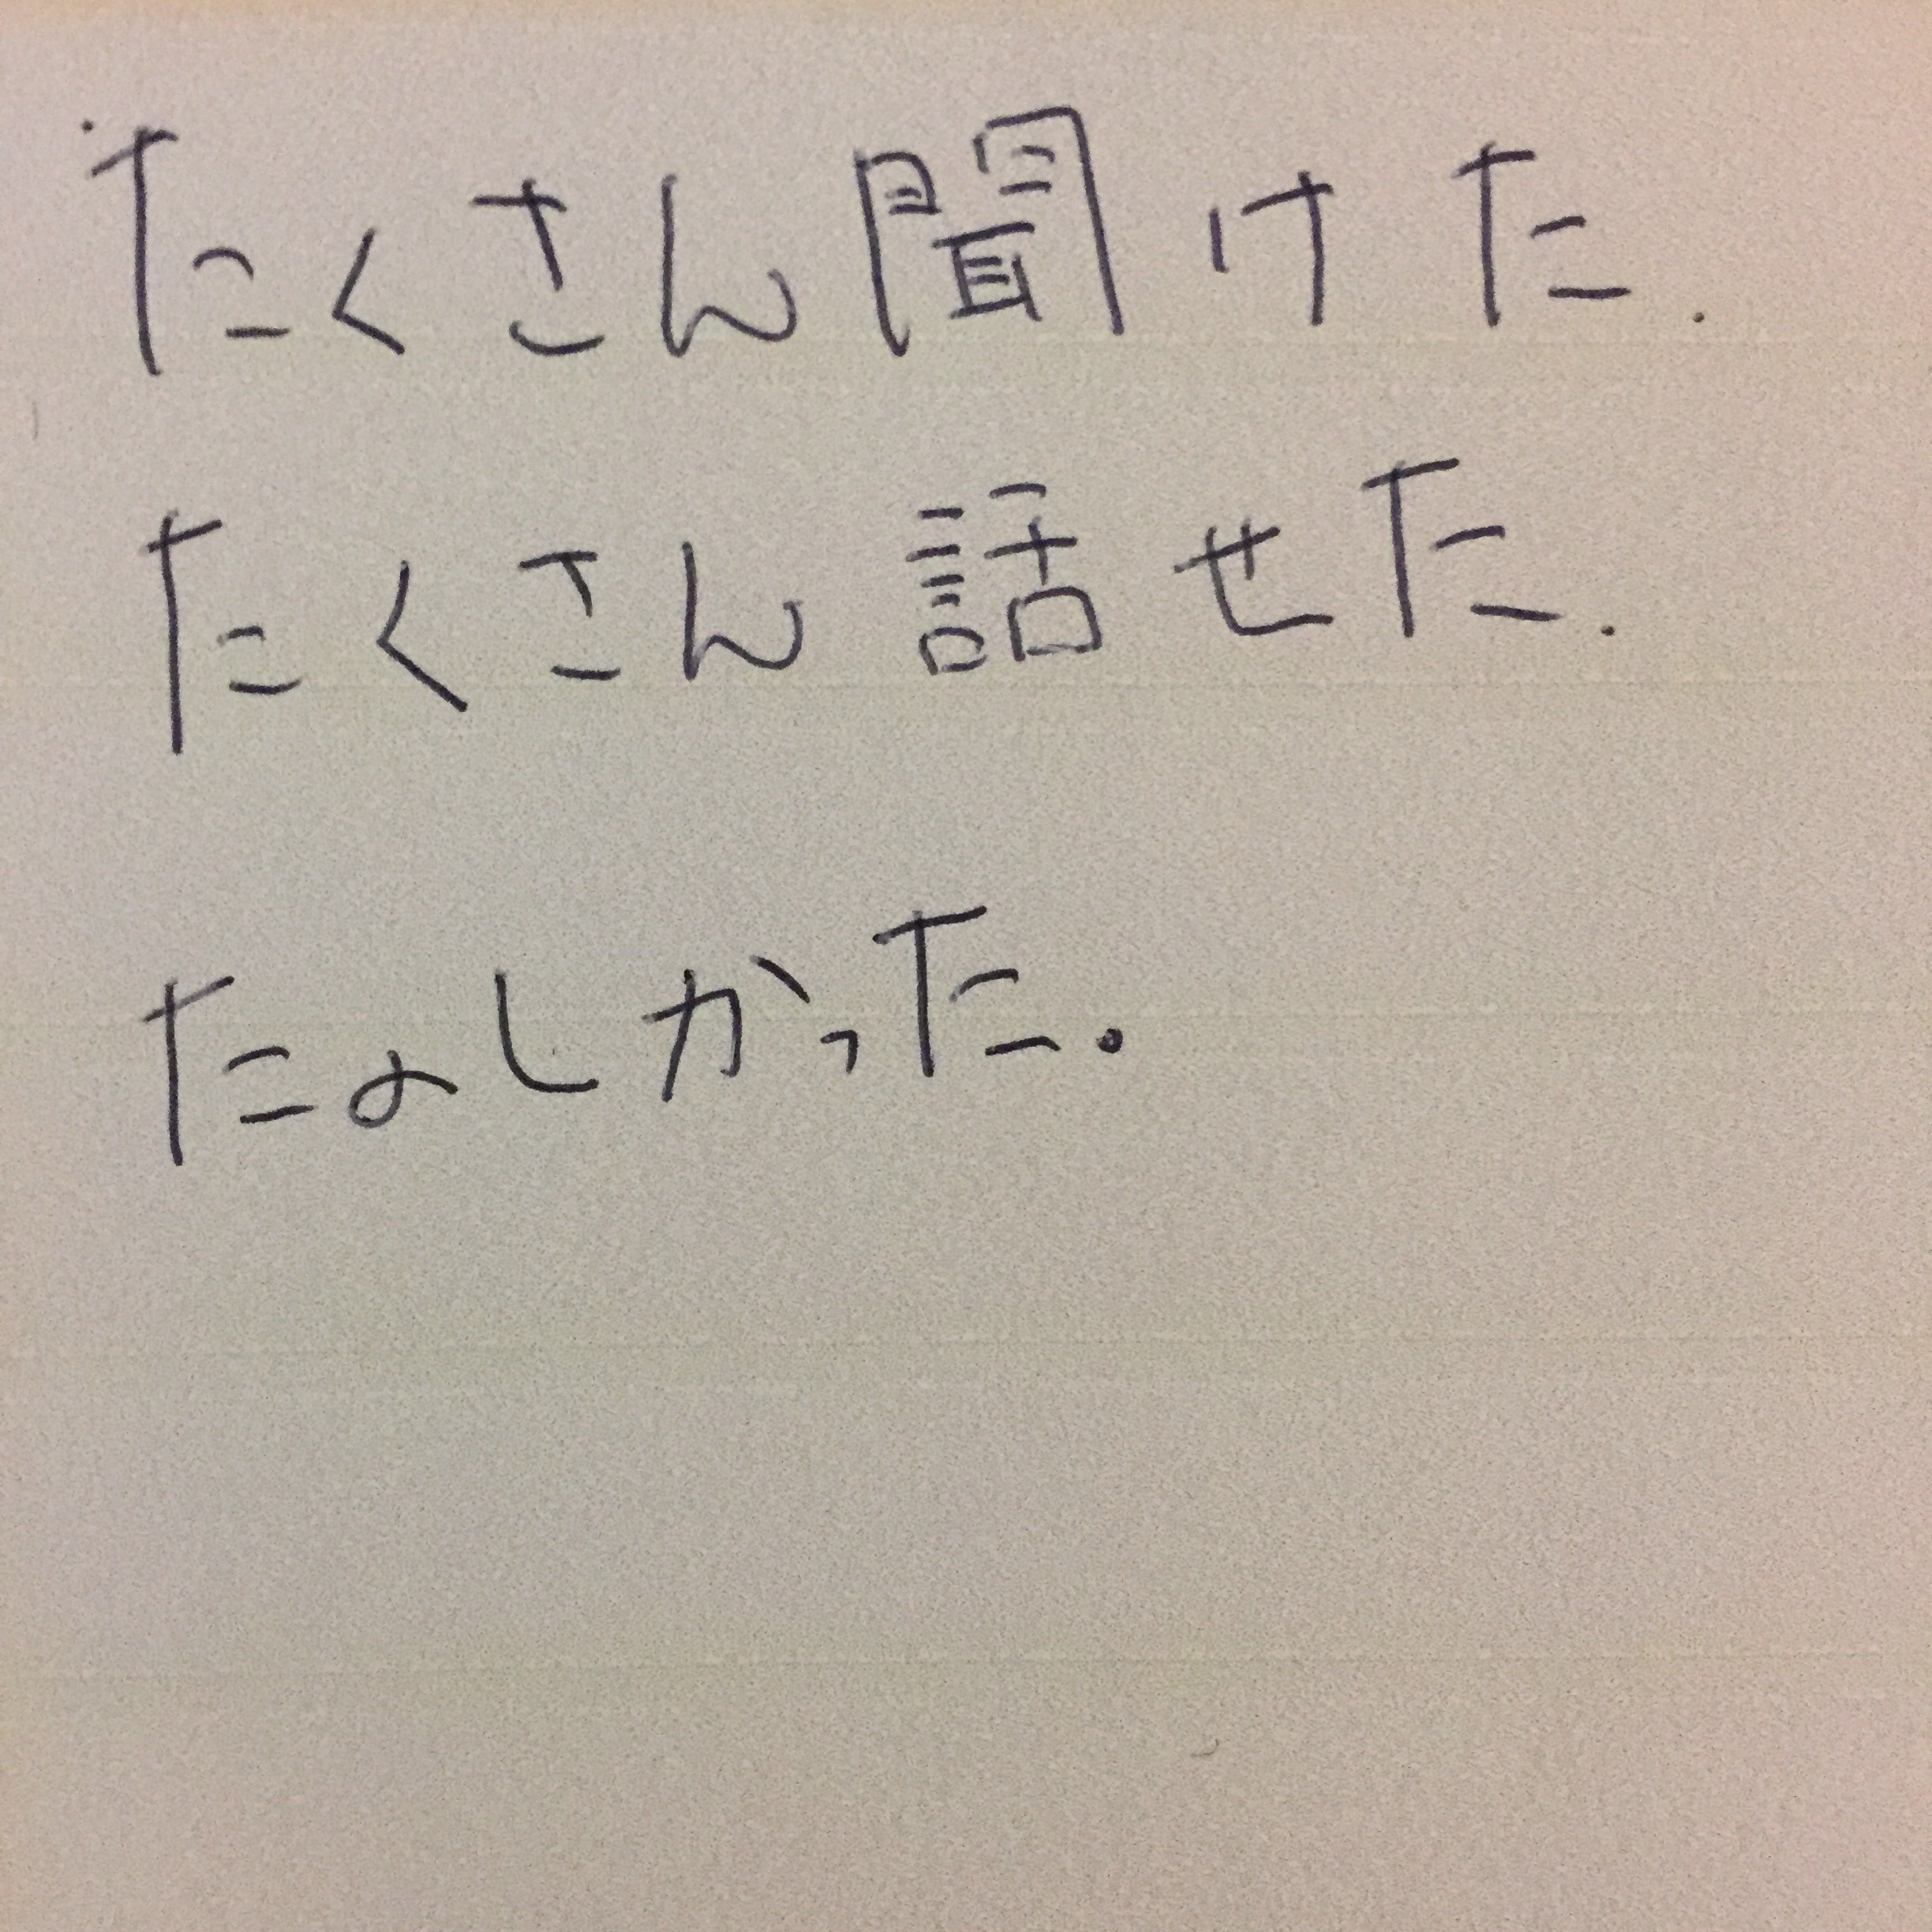 たくさん聞けた.
たくさん話せた.
たのしかった.